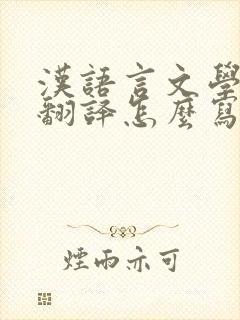 漢語言文學
翻譯怎麼寫
煙雨亦可